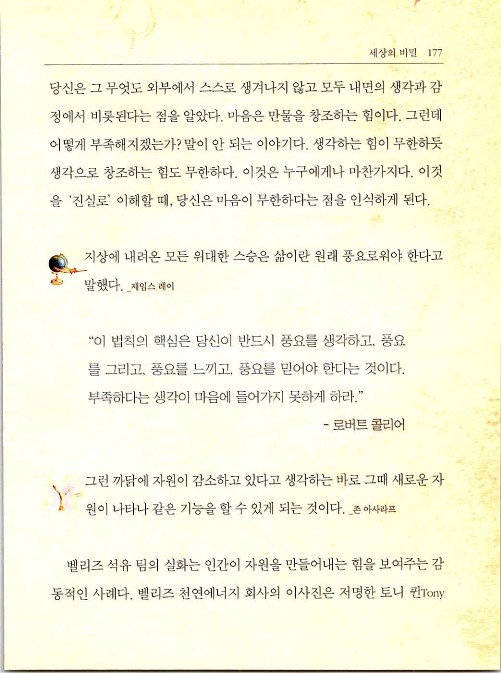 세상의 비밀 177
당신은 그 무엇도 외부에서 스스로 생겨나지 않고 모두 내면의 생각과 감
정에서 비롯된다는 점을 알았다. 마음은 만물을 창조하는 힘이다. 그런데
어떻게 부족해지겠는가? 말이 안 되는 이야기다. 생각하는 힘이 무한하듯
생각으로 창조하는 힘도 무한하다. 이것은 누구에게나 마찬가지다. 이것
을 ‘진실로’ 이해할 때, 당신은 마음이 무한하다는 점을 인식하게 된다.
지상에 내려온 모든 위대한 스승은 삶이란 원래 풍요로워야 한다고
말했다. _제임스 레이
“이 법칙의 핵심은 당신이 반드시 풍요를 생각하고, 풍요
를 그리고, 풍요를 느끼고, 풍요를 믿어야 한다는 것이다.
부족하다는 생각이 마음에 들어가지 못하게 하라.”
- 로버트 콜리어
그런 까닭에 자원이 감소하고 있다고 생각하는 바로 그때 새로운 자
원이 나타나 같은 기능을 할 수 있게 되는 것이다. _존 아사라프
벨리즈 석유 팀의 실화는 인간이 자원을 만들어내는 힘을 보여주는 감
동적인 사례다. 벨리즈 천연에너지 회사의 이사진은 저명한 토니 퀸Tony